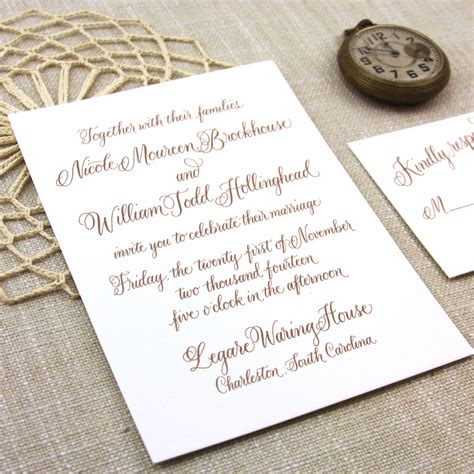 Together with their families
Nicole Moureen Brockhouse
and
William Todd Hollinghead
invite you to celebrate their marriage
Friday the twenty first of November
two thousand fourteen
five o'clock in the afternoon
Legare Waring House
Charleston, South Carolina
Kindly
M